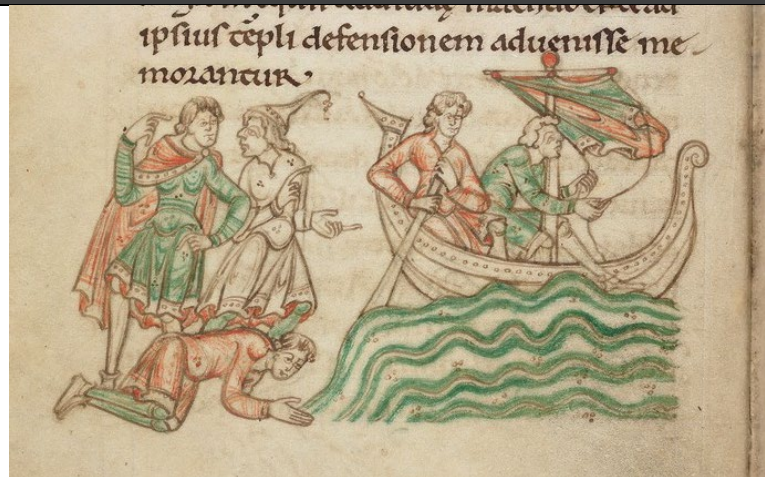 ipsius tēpli defensionem aduenisse me
morantur·